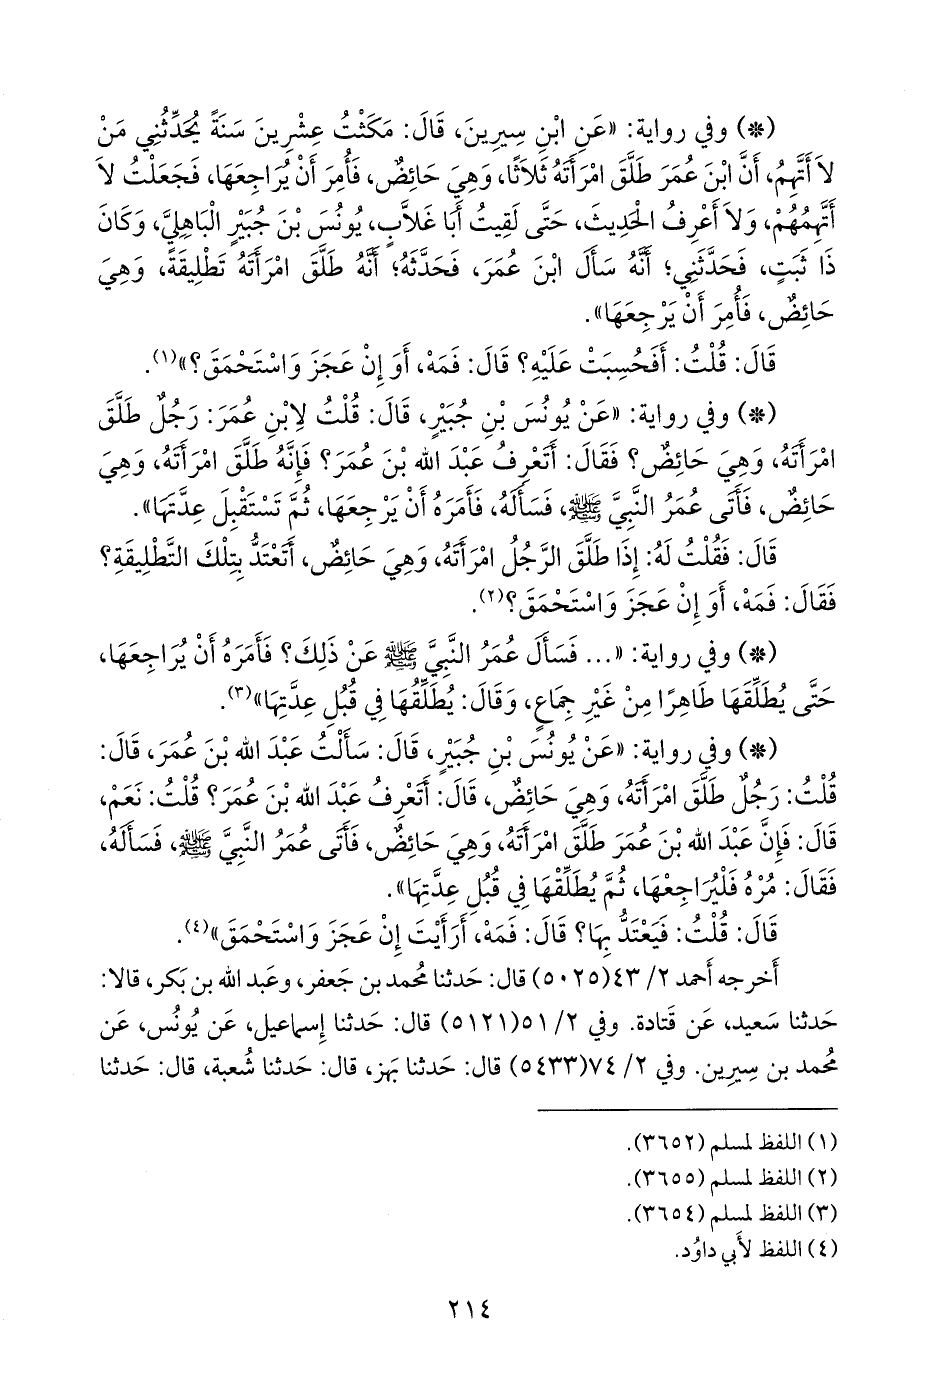 (*) وفي رواية: «عَنِ ابْنِ سِيرِينَ، قَالَ: مَكَثْتُ عِشْرِينَ سَنَةً يُحَدِّثُنِي مَنْ
لاَ أَتَّهِمُ، أَنَّ ابْنَ عُمَرَ طَلَّقَ امْرَأَتَهُ ثَلاَثًا، وَهِيَ حَائِضٌ، فَأُمِرَ أَنْ يُرَاجِعَهَا، فَجَعَلْتُ لاَ
أَتَّهِمُهُمْ، وَلاَ أَعْرِفُ الْحَدِيثَ، حَتَّى لَقِيتُ أَبَا غَلاَّبٍ، يُونُسَ بْنَ جُبَيْرٍ الْبَاهِلِيَّ، وَكَانَ
ذَا ثَبَتٍ، فَحَدَّثَنِي؛ أَنَّهُ سَأَلَ ابْنَ عُمَرَ، فَحَدَّثَهُ؛ أَنَّهُ طَلَّقَ امْرَأَتَهُ تَطْلِيقَةً، وَهِيَ
حَائِضٌ، فَأُمِرَ أَنْ يَرْجِعَهَا».
قَالَ: قُلْتُ: أَفَحُسِبَتْ عَلَيْهِ؟ قَالَ: فَمَهْ، أَوَ إِنْ عَجَزَ وَاسْتَحْمَقَ؟»(١).
(*) وفي رواية: «عَنْ يُونُسَ بْنِ جُبَيْرٍ، قَالَ: قُلْتُ لاِبْنِ عُمَرَ: رَجُلٌ طَلَّقَ
امْرَأَتَهُ، وَهِيَ حَائِضٌ؟ فَقَالَ: أَتَعْرِفُ عَبْدَ الله بْنَ عُمَرَ؟ فَإِنَّهُ طَلَّقَ امْرَأَتَهُ، وَهِيَ
حَائِضٌ، فَأَتَى عُمَرُ النَّبِيَّ ﷺ، فَسَأَلَهُ، فَأَمَرَهُ أَنْ يَرْجِعَهَا، ثُمَّ تَسْتَقْبِلَ عِدَّتَهَا».
قَالَ: فَقُلْتُ لَهُ: إِذَا طَلَّقَ الرَّجُلُ امْرَأَتَهُ، وَهِيَ حَائِضٌ، أَتَعْتَدُّ بِتِلْكَ التَّطْلِيقَةِ؟
فَقَالَ: فَمَهْ، أَوَ إِنْ عَجَزَ وَاسْتَحْمَقَ؟(٢).
(*) وفي رواية: «... فَسَأَلَ عُمَرُ النَّبِيَّ ﷺ عَنْ ذَلِكَ؟ فَأَمَرَهُ أَنْ يُرَاجِعَهَا،
حَتَّى يُطَلِّقَهَا طَاهِرًا مِنْ غَيْرِ جِمَاعٍ، وَقَالَ: يُطَلِّقُهَا فِي قُبُلِ عِدَّتِهَا»(٣).
(*) وفي رواية: «عَنْ يُونُسَ بْنِ جُبَيْرٍ، قَالَ: سَأَلْتُ عَبْدَ الله بْنَ عُمَرَ، قَالَ:
قُلْتُ: رَجُلٌ طَلَّقَ امْرَأَتَهُ، وَهِيَ حَائِضٌ، قَالَ: أَتَعْرِفُ عَبْدَ الله بْنَ عُمَرَ؟ قُلْتُ: نَعَمْ،
قَالَ: فَإِنَّ عَبْدَ الله بْنَ عُمَرَ طَلَّقَ امْرَأَتَهُ، وَهِيَ حَائِضٌ، فَأَتَى عُمَرُ النَّبِيَّ ﷺ، فَسَأَلَهُ،
فَقَالَ: مُرْهُ فَلْيُرَاجِعْهَا، ثُمَّ يُطَلِّقْهَا فِي قُبُلِ عِدَّتِهَا».
قَالَ: قُلْتُ: فَيَعْتَدُّ بِهَا؟ قَالَ: فَمَهْ، أَرَأَيْتَ إِنْ عَجَزَ وَاسْتَحْمَقَ»(٤).
أخرجه أحمد ٢/ ٤٣(٥٠٢٥) قال: حَدثنا مُحمد بن جَعفر، وعَبد الله بن بَكر، قالا:
حَدثنا سَعيد، عَن قَتادة. وفي ٢/ ٥١(٥١٢١) قال: حَدثنا إِسماعيل، عَن يُونُس، عَن
مُحمد بن سِيرِين. وفي ٢/ ٧٤(٥٤٣٣) قال: حَدثنا بَهز، قال: حَدثنا شُعبة، قال: حَدثنا
(١) اللفظ لمسلم (٣٦٥٢).
(٢) اللفظ لمسلم (٣٦٥٥).
(٣) اللفظ لمسلم (٣٦٥٤).
(٤) اللفظ لأَبي داوُد.
٢١٤